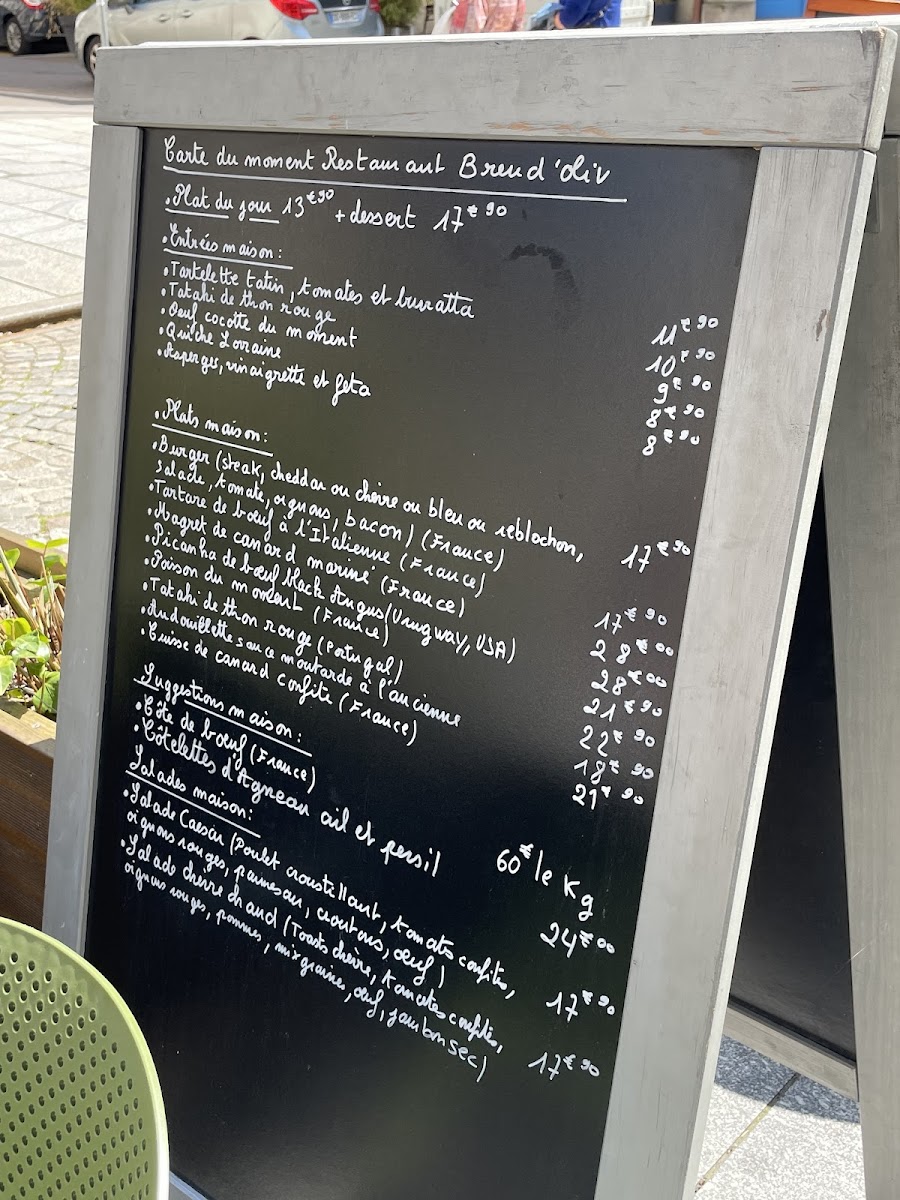 Carte du moment Restaurant Breud'oliv
• Plat du jour 13€90 + dessert 17€90
• Entrées maison :
• Tartelette tatin, tomates et burratta 11€90
• Tataki de thon rouge 10€90
• Oeuf cocotte du moment 9€90
• Quiche Lorraine 8€90
• Asperges, vinaigrette et feta 8€90
• Plats maison :
• Burger (steak, cheddar ou chèvre ou bleu ou reblochon,
salade, tomate, oignons, bacon) (France) 17€90
• Tartare de bœuf à l'Italienne (France) 17€90
• Magret de canard mariné (France) 28€00
• Picanha de bœuf black Angus (Uruguay, USA) 28€00
• Poisson du moment (France) 21€90
• Tataki de thon rouge (Portugal) 22€90
• Andouillette sauce moutarde à l'ancienne 18€90
• Cuisse de canard confite (France) 21€90
Suggestions maison :
• Côte de bœuf (France) 60€ le Kg
• Côtelettes d'Agneau ail et persil 24€00
Salades maison :
• Salade Caesar (Poulet croustillant, tomates confites,
oignons rouges, parmesan, croutons, œuf) 17€90
• Salade chèvre chaud (Toasts chèvre, tomates confites,
oignons rouges, pommes, mix graines, œuf, jambon sec) 17€90